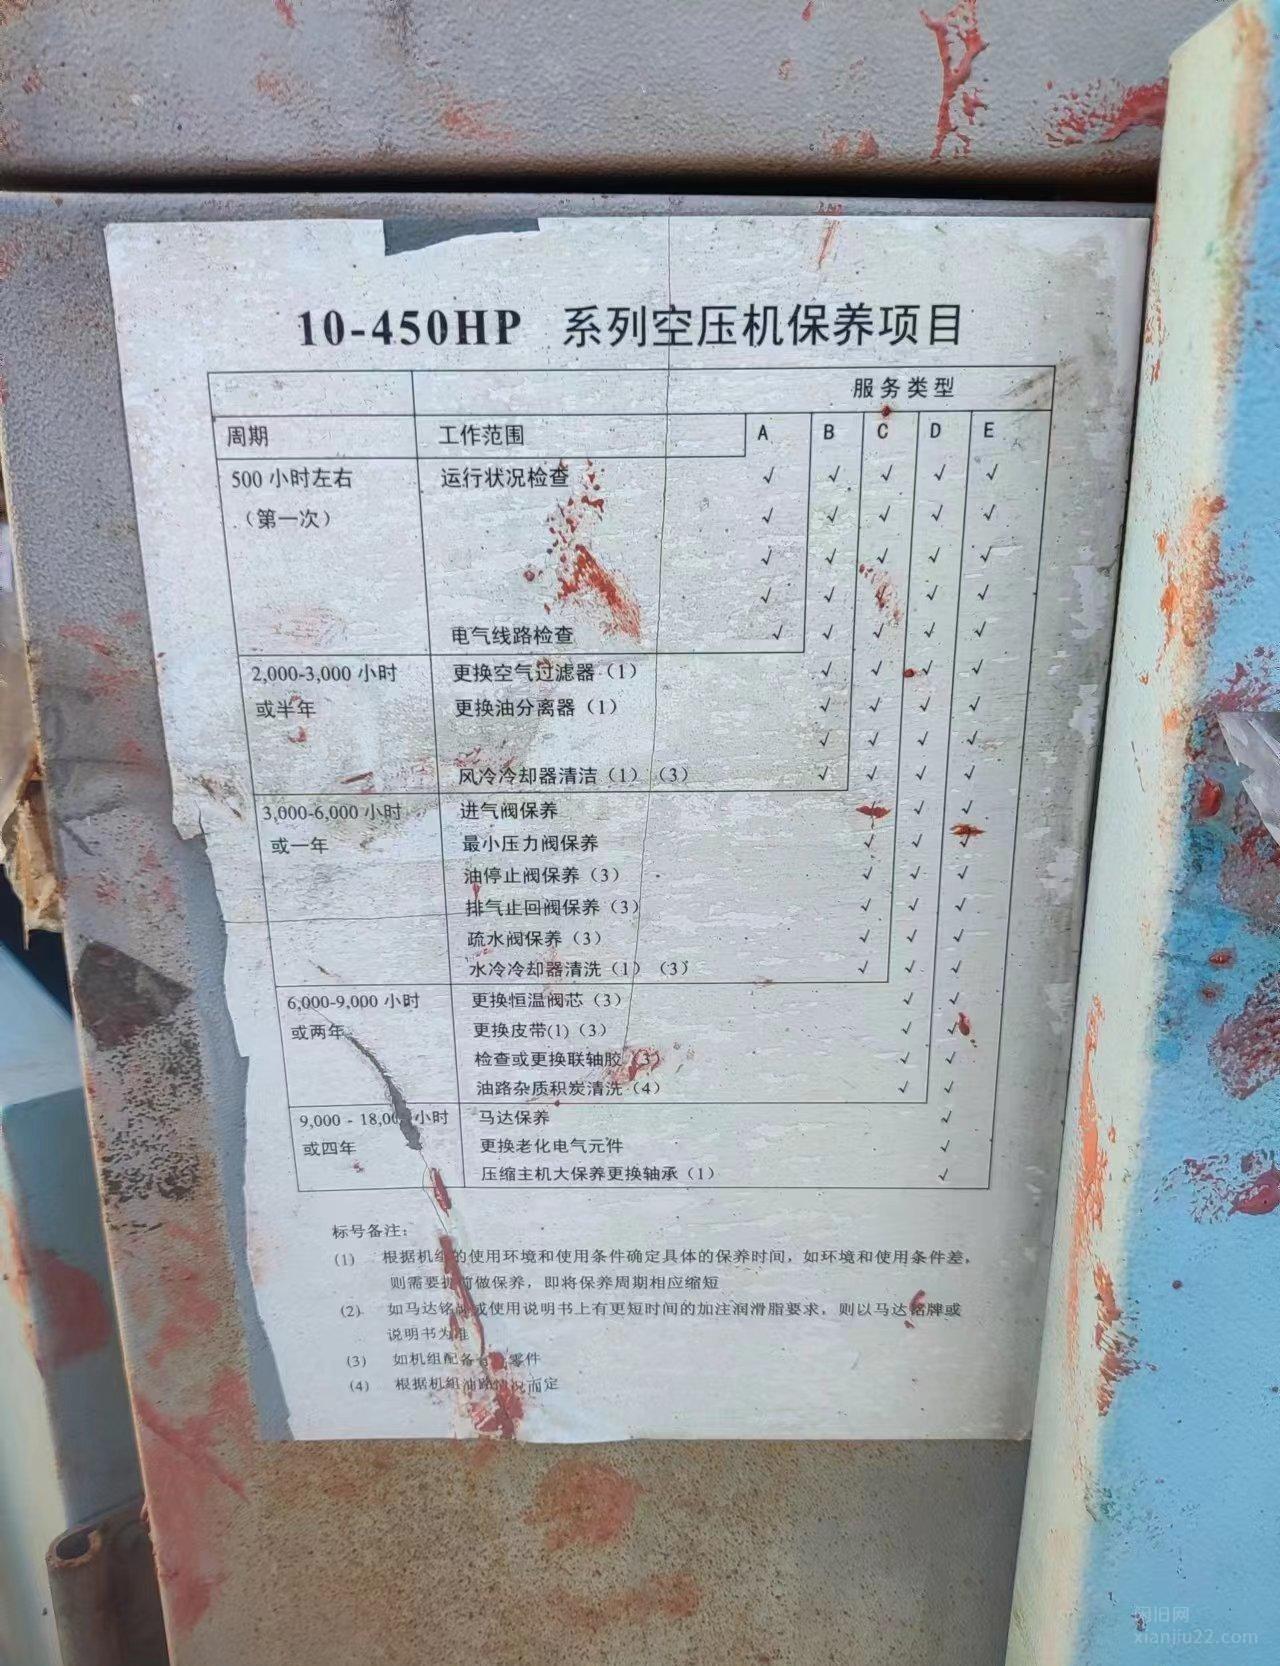 10-450HP 系列空压机保养项目
服务类型
周期 工作范围 A B C D E
500 小时左右 运行状况检查 √ √ √ √ √
（第一次） √ √ √ √ √
√ √ √ √ √
√ √ √ √ √
电气线路检查 √ √ √ √ √
2,000-3,000 小时 更换空气过滤器（1） √ √ √ √
或半年 更换油分离器（1） √ √ √ √
√ √ √ √
风冷冷却器清洁（1）（3） √ √ √ √
3,000-6,000 小时 进气阀保养 √ √ √
或一年 最小压力阀保养 √ √ √
油停止阀保养（3） √ √ √
排气止回阀保养（3） √ √ √
疏水阀保养（3） √ √ √
水冷冷却器清洗（1）（3） √ √ √
6,000-9,000 小时 更换恒温阀芯（3） √ √
或两年 更换皮带(1)（3） √ √
检查或更换联轴胶（3） √ √
油路杂质积炭清洗（4） √ √
9,000 - 18,00 小时 马达保养 √
或四年 更换老化电气元件 √
压缩主机大保养更换轴承（1） √
标号备注：
（1） 根据机组的使用环境和使用条件确定具体的保养时间，如环境和使用条件差，
则需要提前做保养，即将保养周期相应缩短
（2） 如马达铭牌或使用说明书上有更短时间的加注润滑脂要求，则以马达铭牌或
说明书为准
（3） 如机组配备 零件
（4） 根据机组油路情况而定
闲旧网
xianjiu22.com